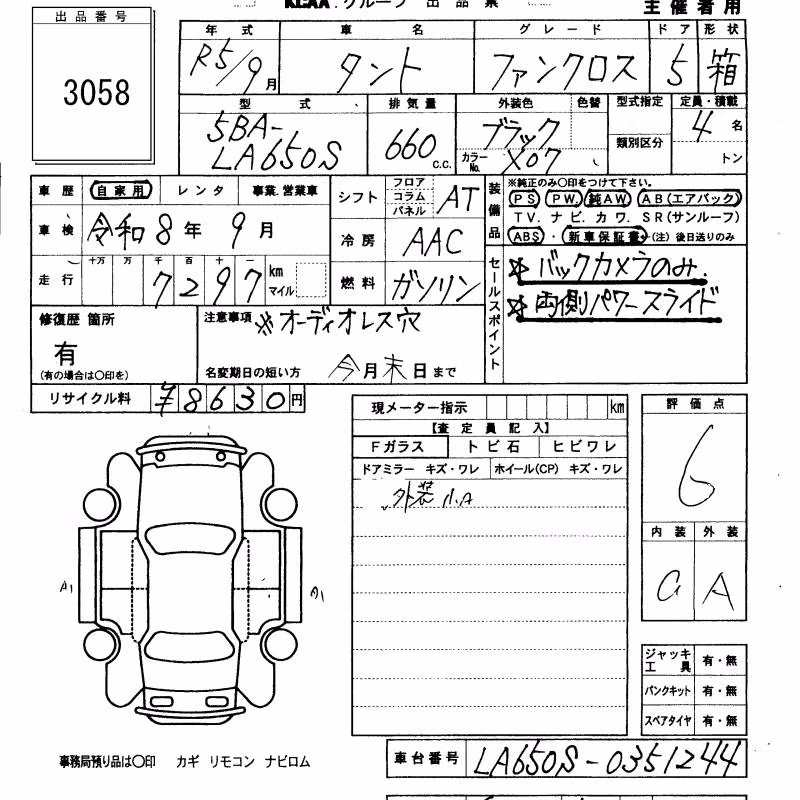 KCAA グループ 出 品 票
主 催 者 用
出 品 番 号
3058
年 式 車 名 グ レ ー ド ド ア 形 状
R5/9月 タント ファンクロス 5 箱
型 式 排 気 量 外装色 色替 型式指定 定員・積載
5BA-
LA650S 660 c.c. ブラック
カラーNo. X07
類別区分
4 名
トン
車 歴 自 家 用 レ ン タ 事業.営業車
車 検 令和 8 年 9 月
走 行 十万 万 千 百 十 一
7 2 9 7 km
マイル
シフト フロア
コラム
パネル
AT
冷 房 AAC
燃 料 ガソリン
装備品
※純正のみ〇印をつけて下さい。
PS PW. 純AW AB(エアバック)
TV. ナ ビ. カ ワ. SR(サンルーフ)
ABS ・ 新車保証書 ・(注) 後日送りのみ
セールスポイント
☆ バックカメラのみ.
☆ 両側パワースライド
修復歴 箇所
有
(有の場合は〇印を)
注意事項 ※オーディオレス穴
名変期日の短い方 今月末日まで
リサイクル料 ¥8630円
現メーター指示 km
【査 定 員 記 入】
Fガラス ト ビ 石 ヒ ビ ワ レ
ドアミラー キズ・ワレ ホイール(CP) キズ・ワレ
外装 小A
評 価 点
6
内 装 外 装
A
A1
A1
ジャッキ
工 具 有・無
パンクキット 有・無
スペアタイヤ 有・無
事務局預り品は〇印 カギ リモコン ナビロム
車 台 番 号 LA650S-0351244